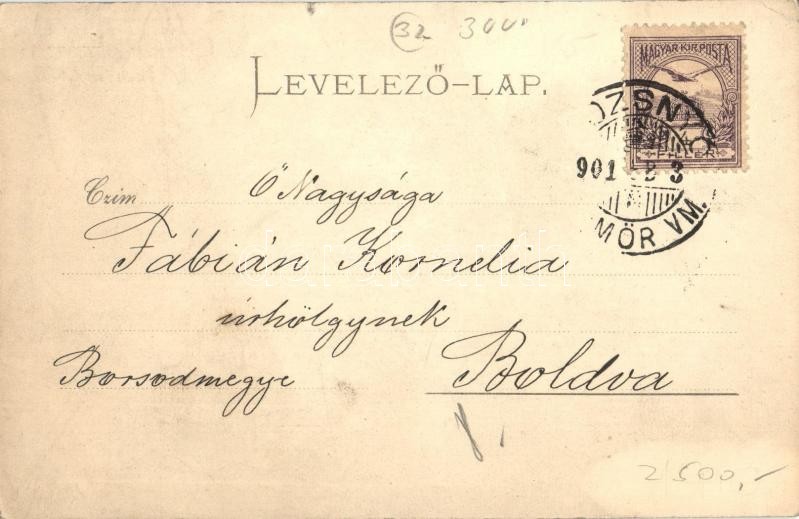 32 3000
LEVELEZŐ-LAP.
MAGYAR KIR. POSTA
FILLÉR
OZSNYÓ
901
3
MÖR VM.
Czim Ő Nagysága
Fábián Kornelia
úrhölgynek
Borsodmegye Boldva
2500,-